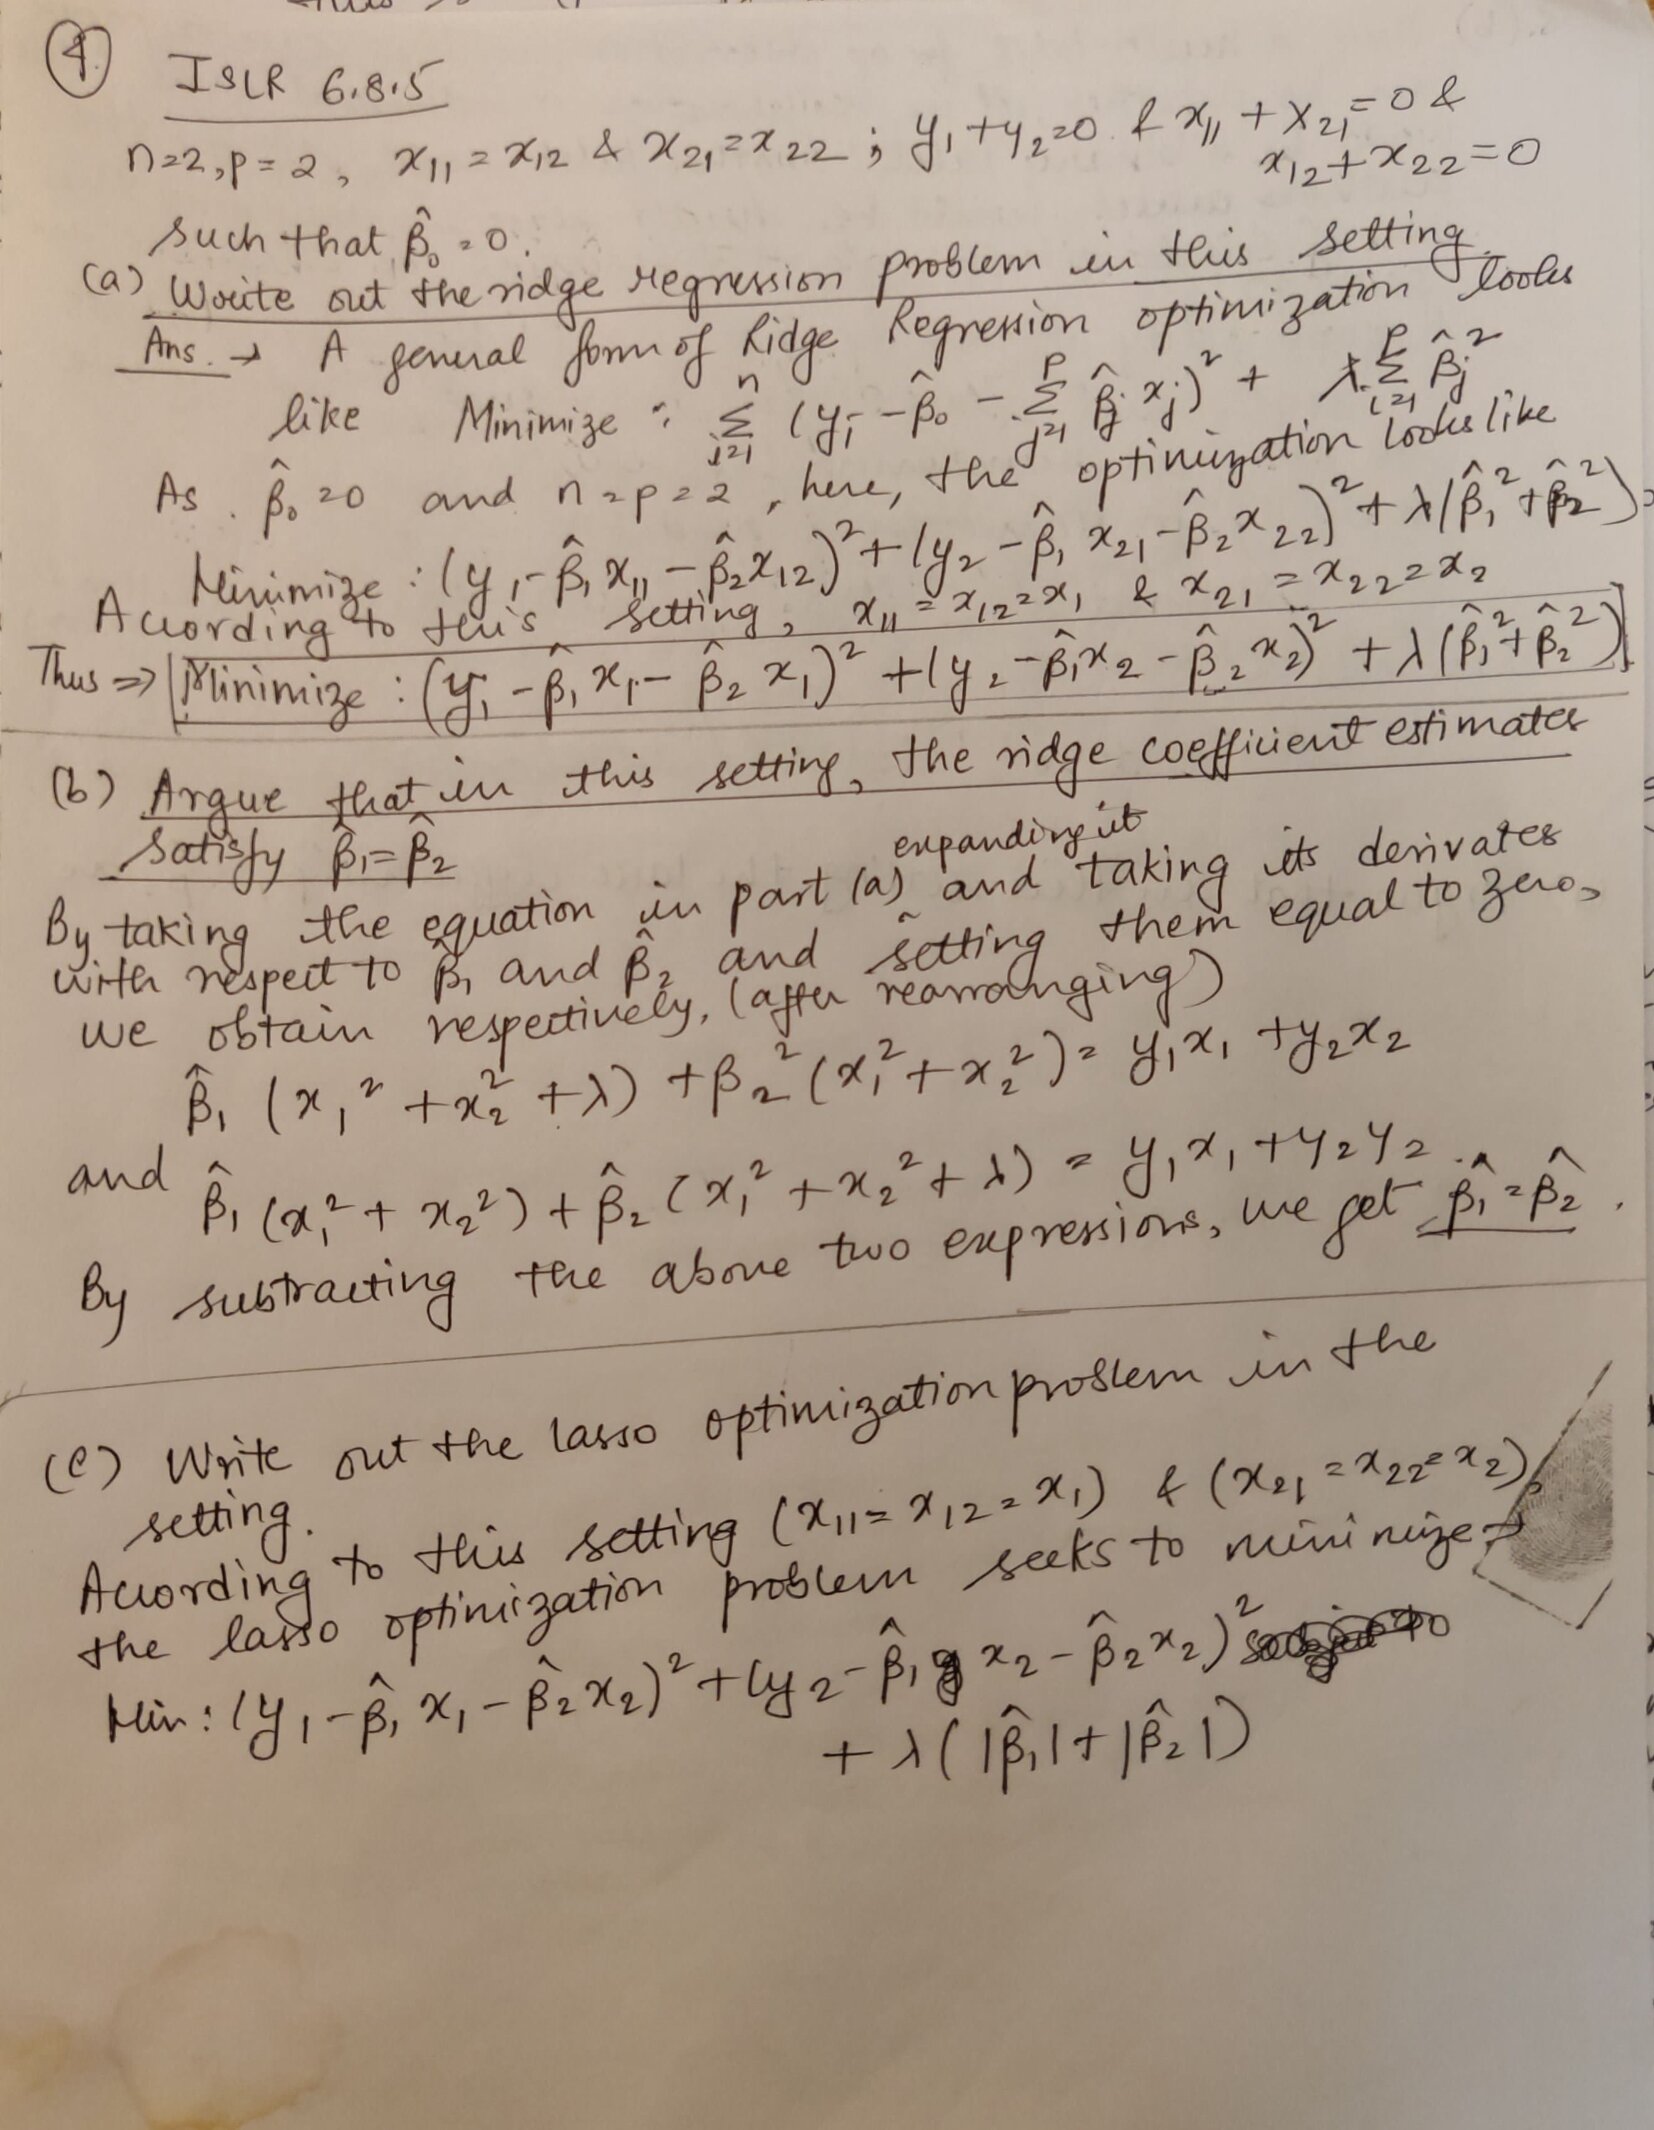 4.
ISLR 6.8.5
n=2, p=2, x₁₁ = x₁₂ & x₂₁ = x₂₂ ; y₁+y₂=0 & x₁₁ + x₂₁ = 0 &
x₁₂ + x₂₂ = 0
such that β̂₀ = 0.
(a) Write out the ridge regression problem in this setting.
Ans. → A general form of Ridge Regression optimization looks
like Minimize : Σᵢ₌₁ⁿ (yᵢ - β̂₀ - Σⱼ₌₁ᵖ β̂ⱼ xⱼ)² + λ Σᵢ₌₁ᵖ β̂ⱼ²
As β̂₀ = 0 and n=p=2, here, the optimization looks like
Minimize : (y₁ - β̂₁x₁₁ - β̂₂x₁₂)² + (y₂ - β̂₁x₂₁ - β̂₂x₂₂)² + λ(β̂₁² + β̂₂²)
According to this setting, x₁₁ = x₁₂ = x₁ & x₂₁ = x₂₂ = x₂
Thus ⇒ Minimize : (y₁ - β̂₁x₁ - β̂₂x₁)² + (y₂ - β̂₁x₂ - β̂₂x₂)² + λ(β̂₁² + β̂₂²)
(b) Argue that in this setting, the ridge coefficient estimates
satisfy β̂₁ = β̂₂
expanding it
By taking the equation in part (a) and taking its derivates
with respect to β̂₁ and β̂₂ and setting them equal to zero,
we obtain respectively, (after rearranging)
β̂₁ (x₁² + x₂² + λ) + β₂² (x₁² + x₂²) = y₁x₁ + y₂x₂
and β̂₁ (x₁² + x₂²) + β̂₂ (x₁² + x₂² + λ) = y₁x₁ + y₂y₂.
By subtracting the above two expressions, we get β̂₁ = β̂₂.
(c) Write out the lasso optimization problem in the
setting.
According to this setting (x₁₁ = x₁₂ = x₁) & (x₂₁ = x₂₂ = x₂),
the lasso optimization problem seeks to minimize →
Min : (y₁ - β̂₁x₁ - β̂₂x₂)² + (y₂ - β̂₁x₂ - β̂₂x₂)²
+ λ(|β̂₁| + |β̂₂|)